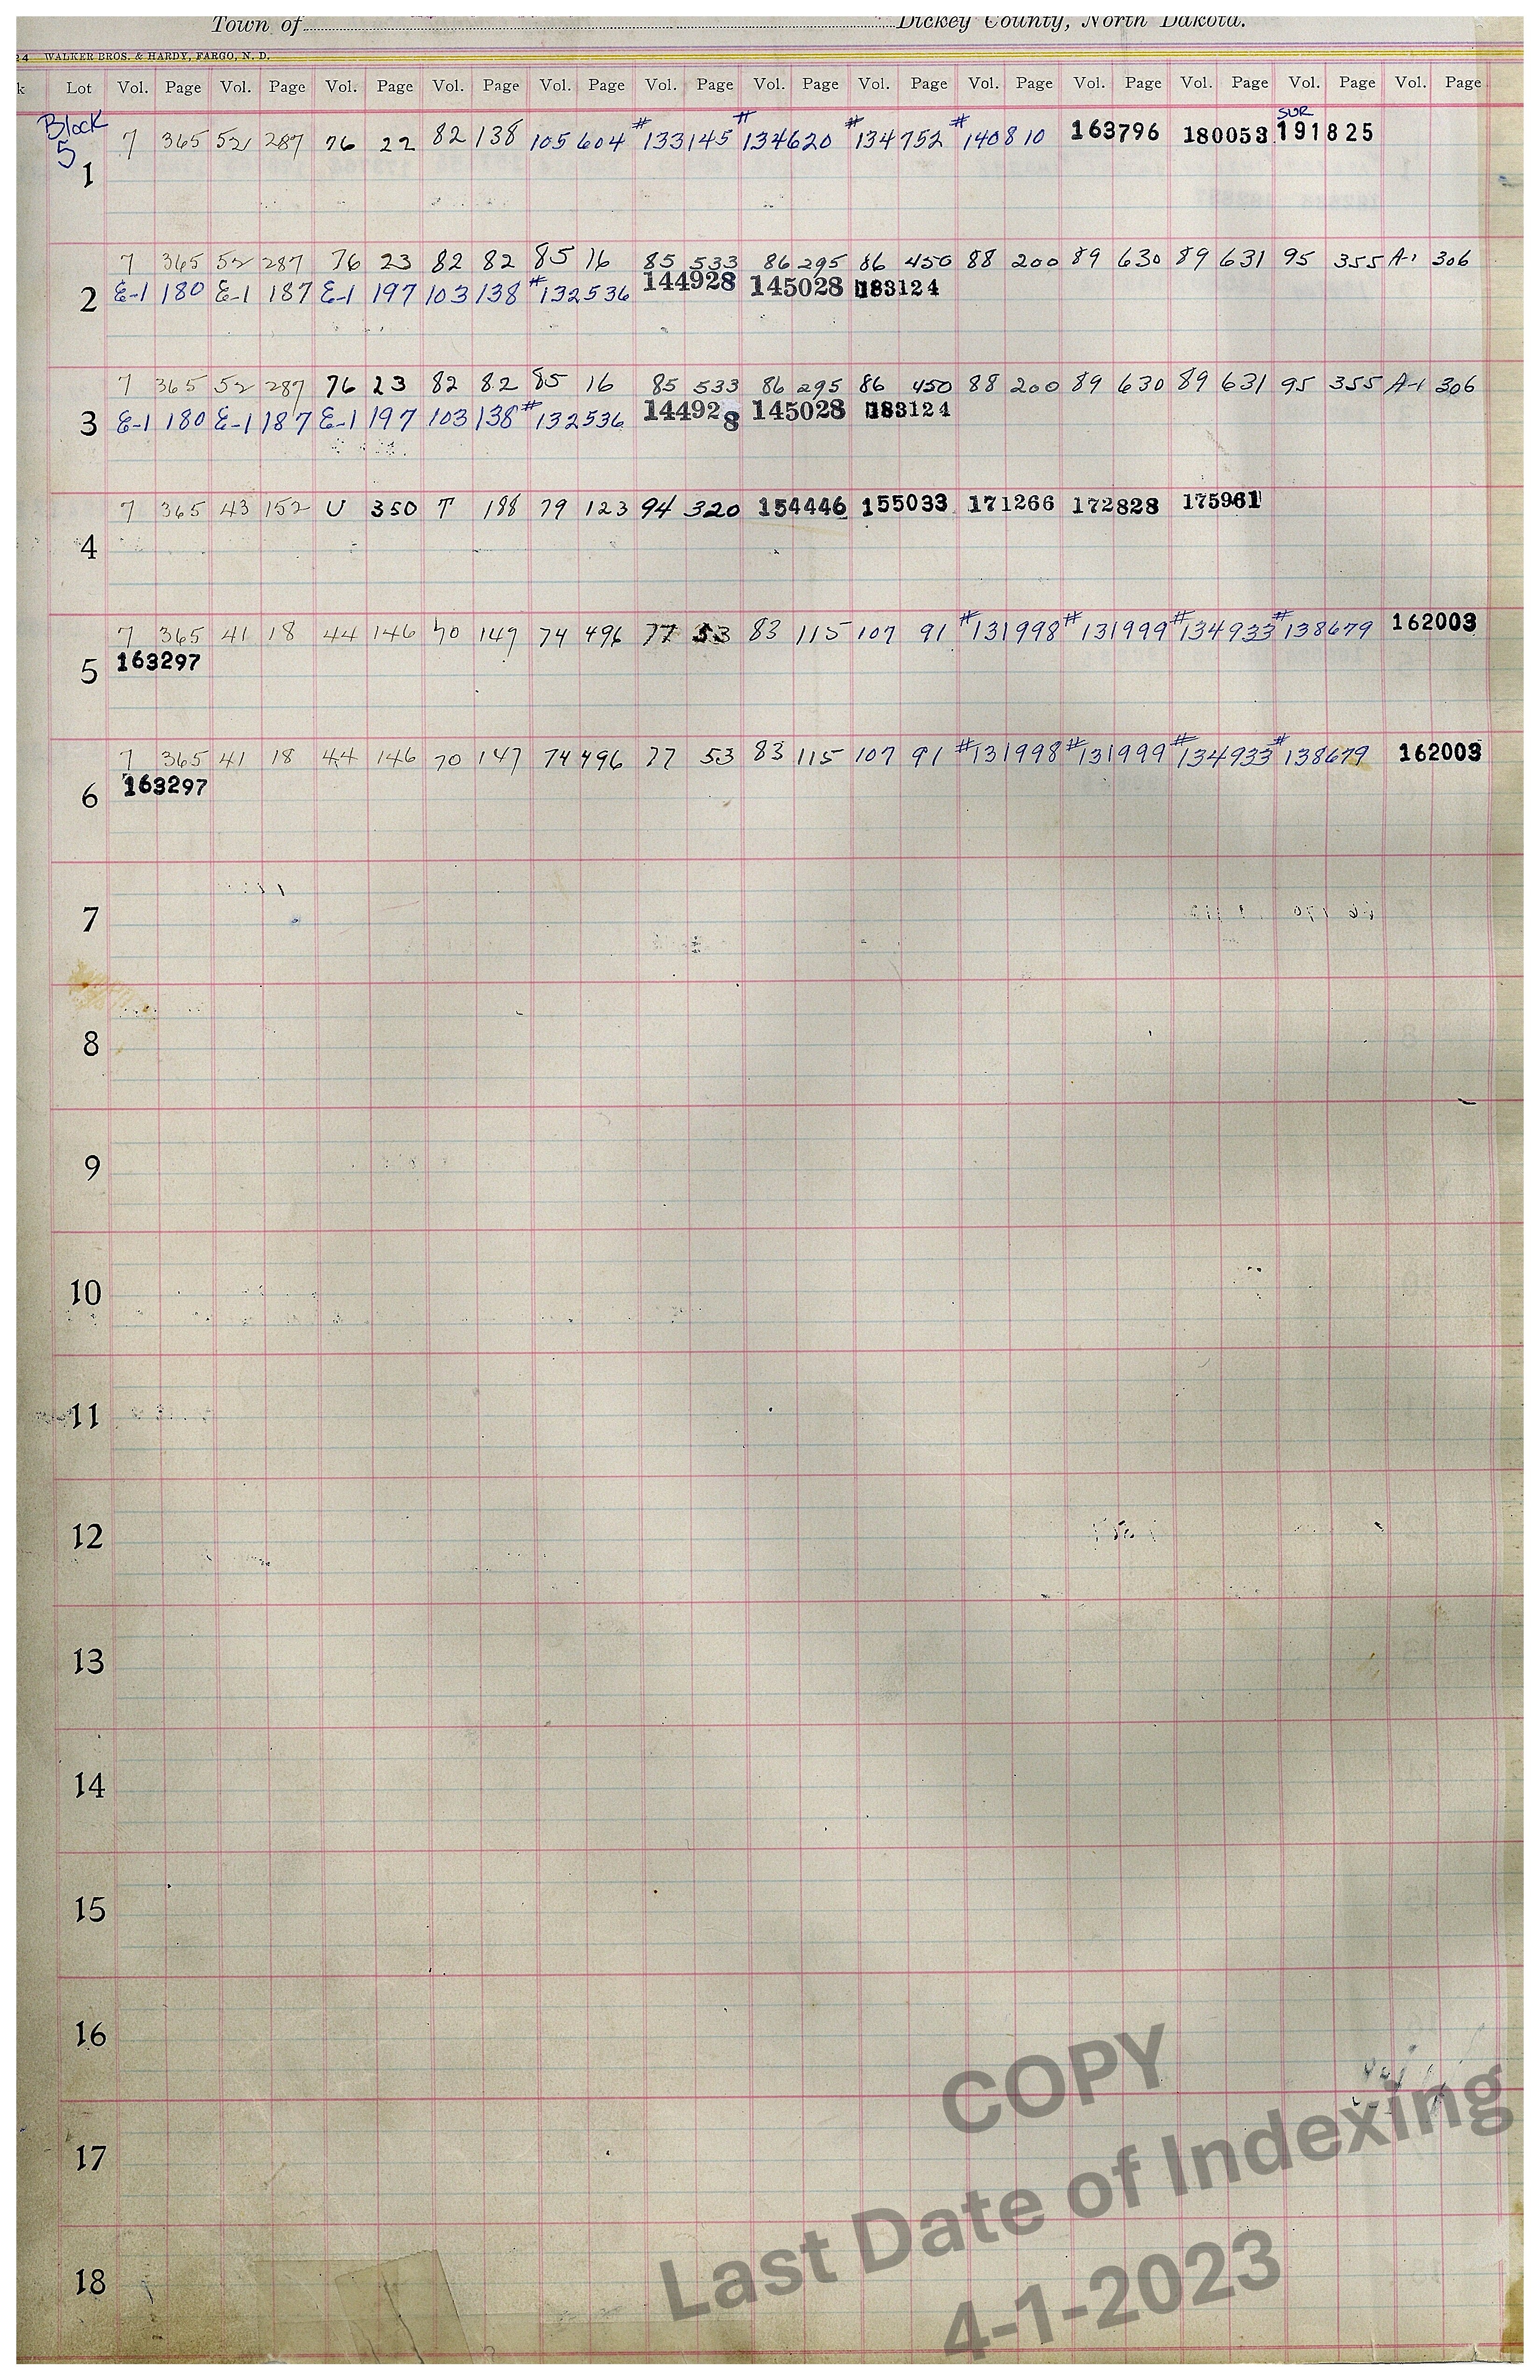 Town of Dickey County, North Dakota.
24 WALKER BROS. & HARDY, FARGO, N. D.
k Lot Vol. Page Vol. Page Vol. Page Vol. Page Vol. Page Vol. Page Vol. Page Vol. Page Vol. Page Vol. Page Vol. Page Vol. Page Vol. Page
SUR
Block 7 365 52 287 76 22 82 138 105 604 #133145 #134620 #134752 #140810 163796 180053 191825
5
1
7 365 52 287 76 23 82 82 85 16 85 533 86 295 86 450 88 200 89 630 89 631 95 355 A-1 306
2 E-1 180 E-1 187 E-1 197 103 138 #132536 144928 145028 183124
7 365 52 287 76 23 82 82 85 16 85 533 86 295 86 450 88 200 89 630 89 631 95 355 A-1 306
3 E-1 180 E-1 187 E-1 197 103 138 #132536 144928 145028 183124
7 365 43 152 U 350 T 188 79 123 94 320 154446 155033 171266 172828 175961
4
7 365 41 18 44 146 70 147 74 496 77 53 83 115 107 91 #131998 #131999 #134933 #138679 162003
163297
5
7 365 41 18 44 146 70 147 74 496 77 53 83 115 107 91 #131998 #131999 #134933 #138679 162003
163297
6
7
8
9
10
11
12
13
14
15
16
17
18
COPY
Last Date of Indexing
4-1-2023